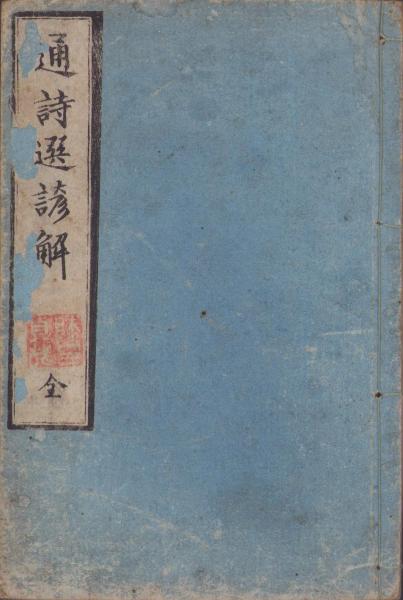 通詩選諺解
全